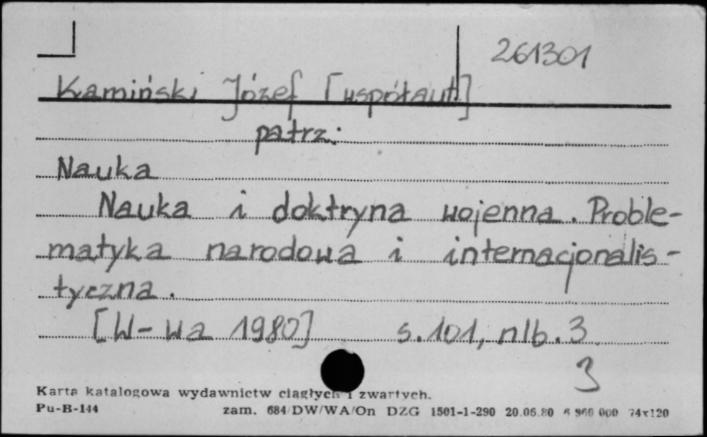 261301
Kamiński Józef [współaut]
patrz:
Nauka
Nauka i doktryna wojenna. Proble-
matyka narodowa i internacjonalis-
tyczna.
[W-wa 1980] s. 101, nlb. 3
3
Karta katalogowa wydawnictw ciągłych i zwartych.
Pu-B-144 zam. 684/DW/WA/On DZG 1501-1-290 20.06.80 000 74x120